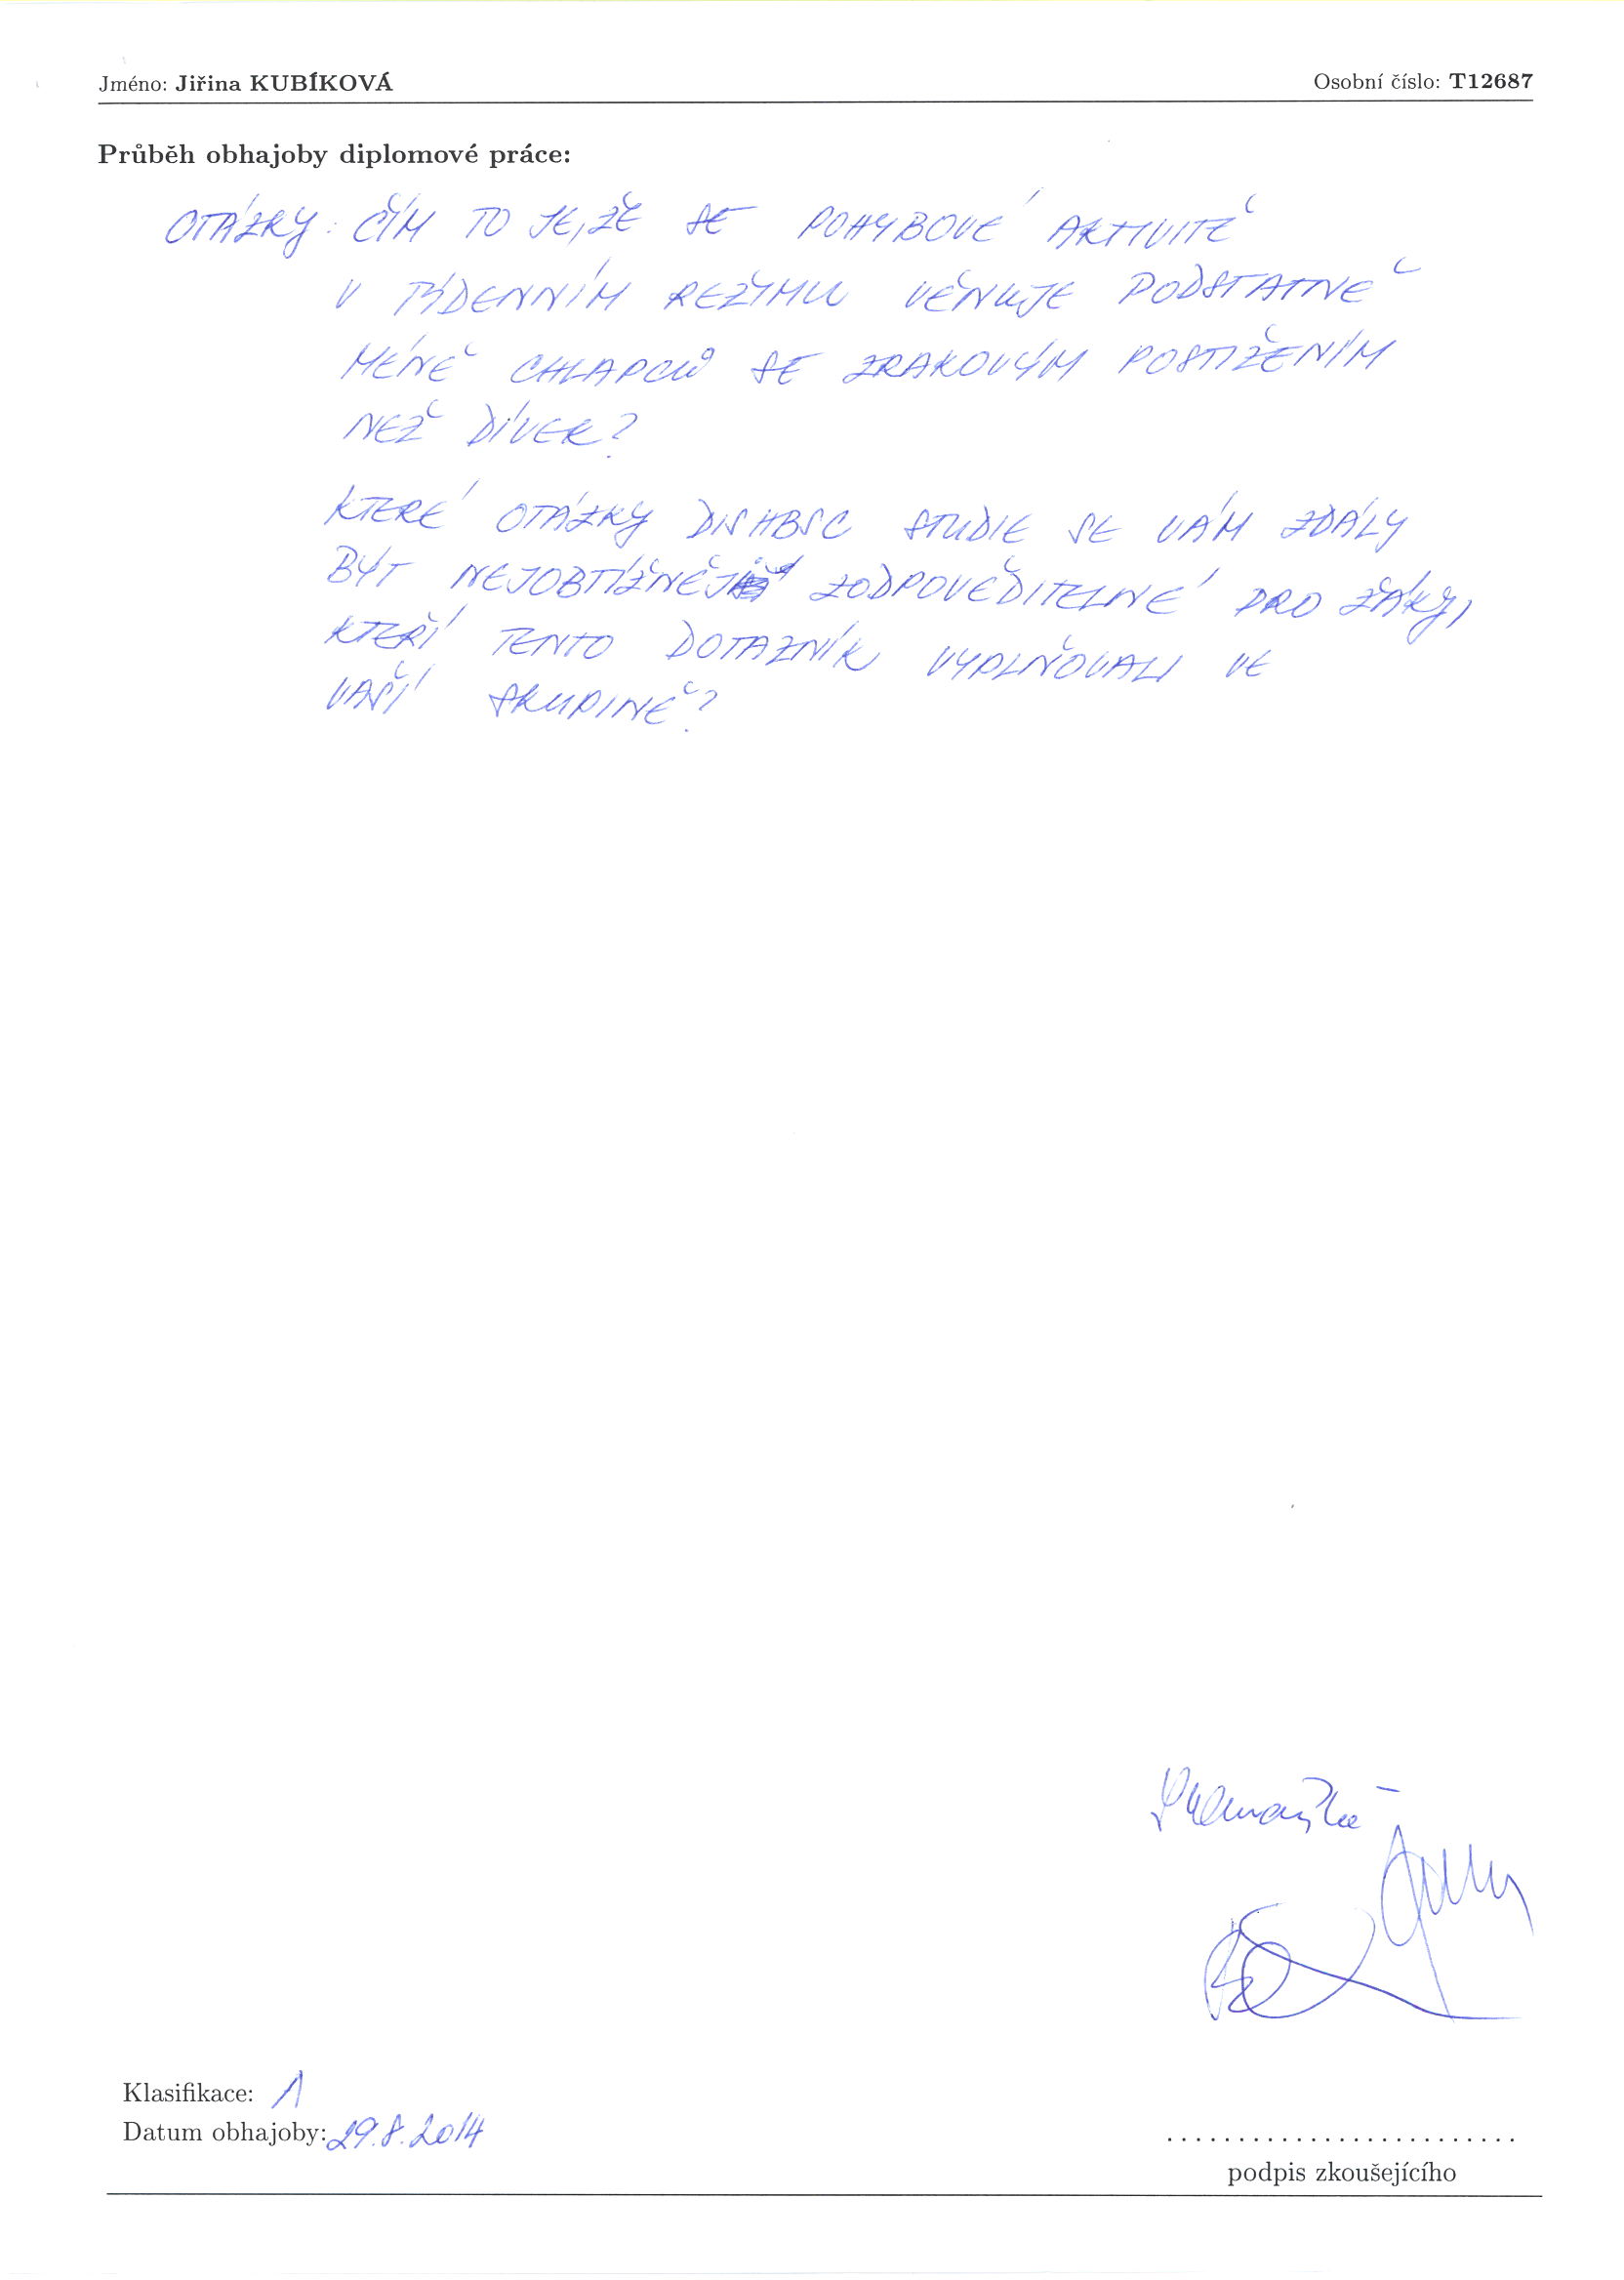 Jméno: Jiřina KUBÍKOVÁ Osobní číslo: T12687
Průběh obhajoby diplomové práce:
OTÁZKY: ČÍM TO JE, ŽE SE POHYBOVÉ AKTIVITĚ
V TÝDENNÍM REŽIMU VĚNUJE PODSTATNĚ
MÉNĚ CHLAPCŮ SE ZRAKOVÝM POSTIŽENÍM
NEŽ DÍVEK?
KTERÉ OTÁZKY DISHBSC STUDIE SE VÁM ZDÁLY
BÝT NEJOBTÍŽNĚJI ZODPOVĚDITELNÉ PRO ŽÁKY,
KTEŘÍ TENTO DOTAZNÍK VYPLŇOVALI VE
VAŠÍ SKUPINĚ?
Klasifikace: 1
Datum obhajoby: 29.8.2014
podpis zkoušejícího